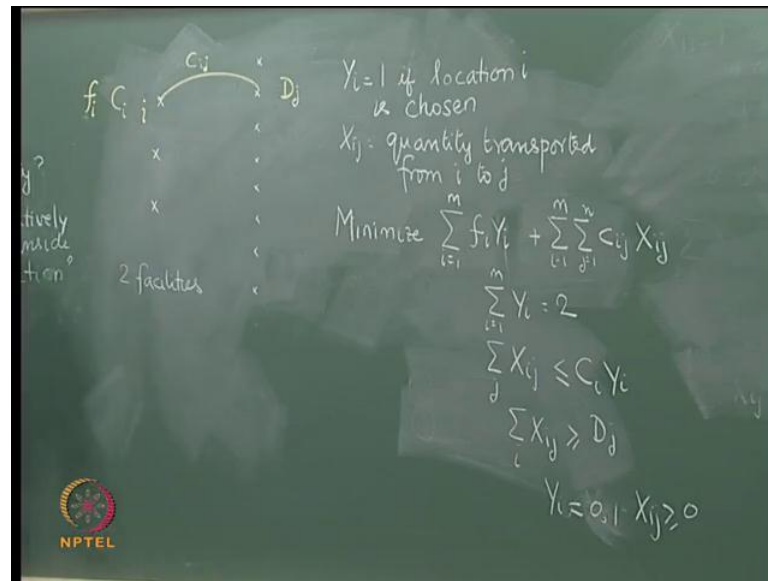 C_ij
f_i C_i i D_j
2 facilities
y?
tively
nside
tion"
Y_i = 1 if location i
is chosen
X_ij: quantity transported
from i to j
Minimize ∑_{i=1}^{m} f_i Y_i + ∑_{i=1}^{m} ∑_{j=1}^{n} C_ij X_ij
∑_{i=1}^{m} Y_i = 2
∑_j X_ij ≤ C_i Y_i
∑_i X_ij ≥ D_j
Y_i = 0,1 X_ij ≥ 0
NPTEL